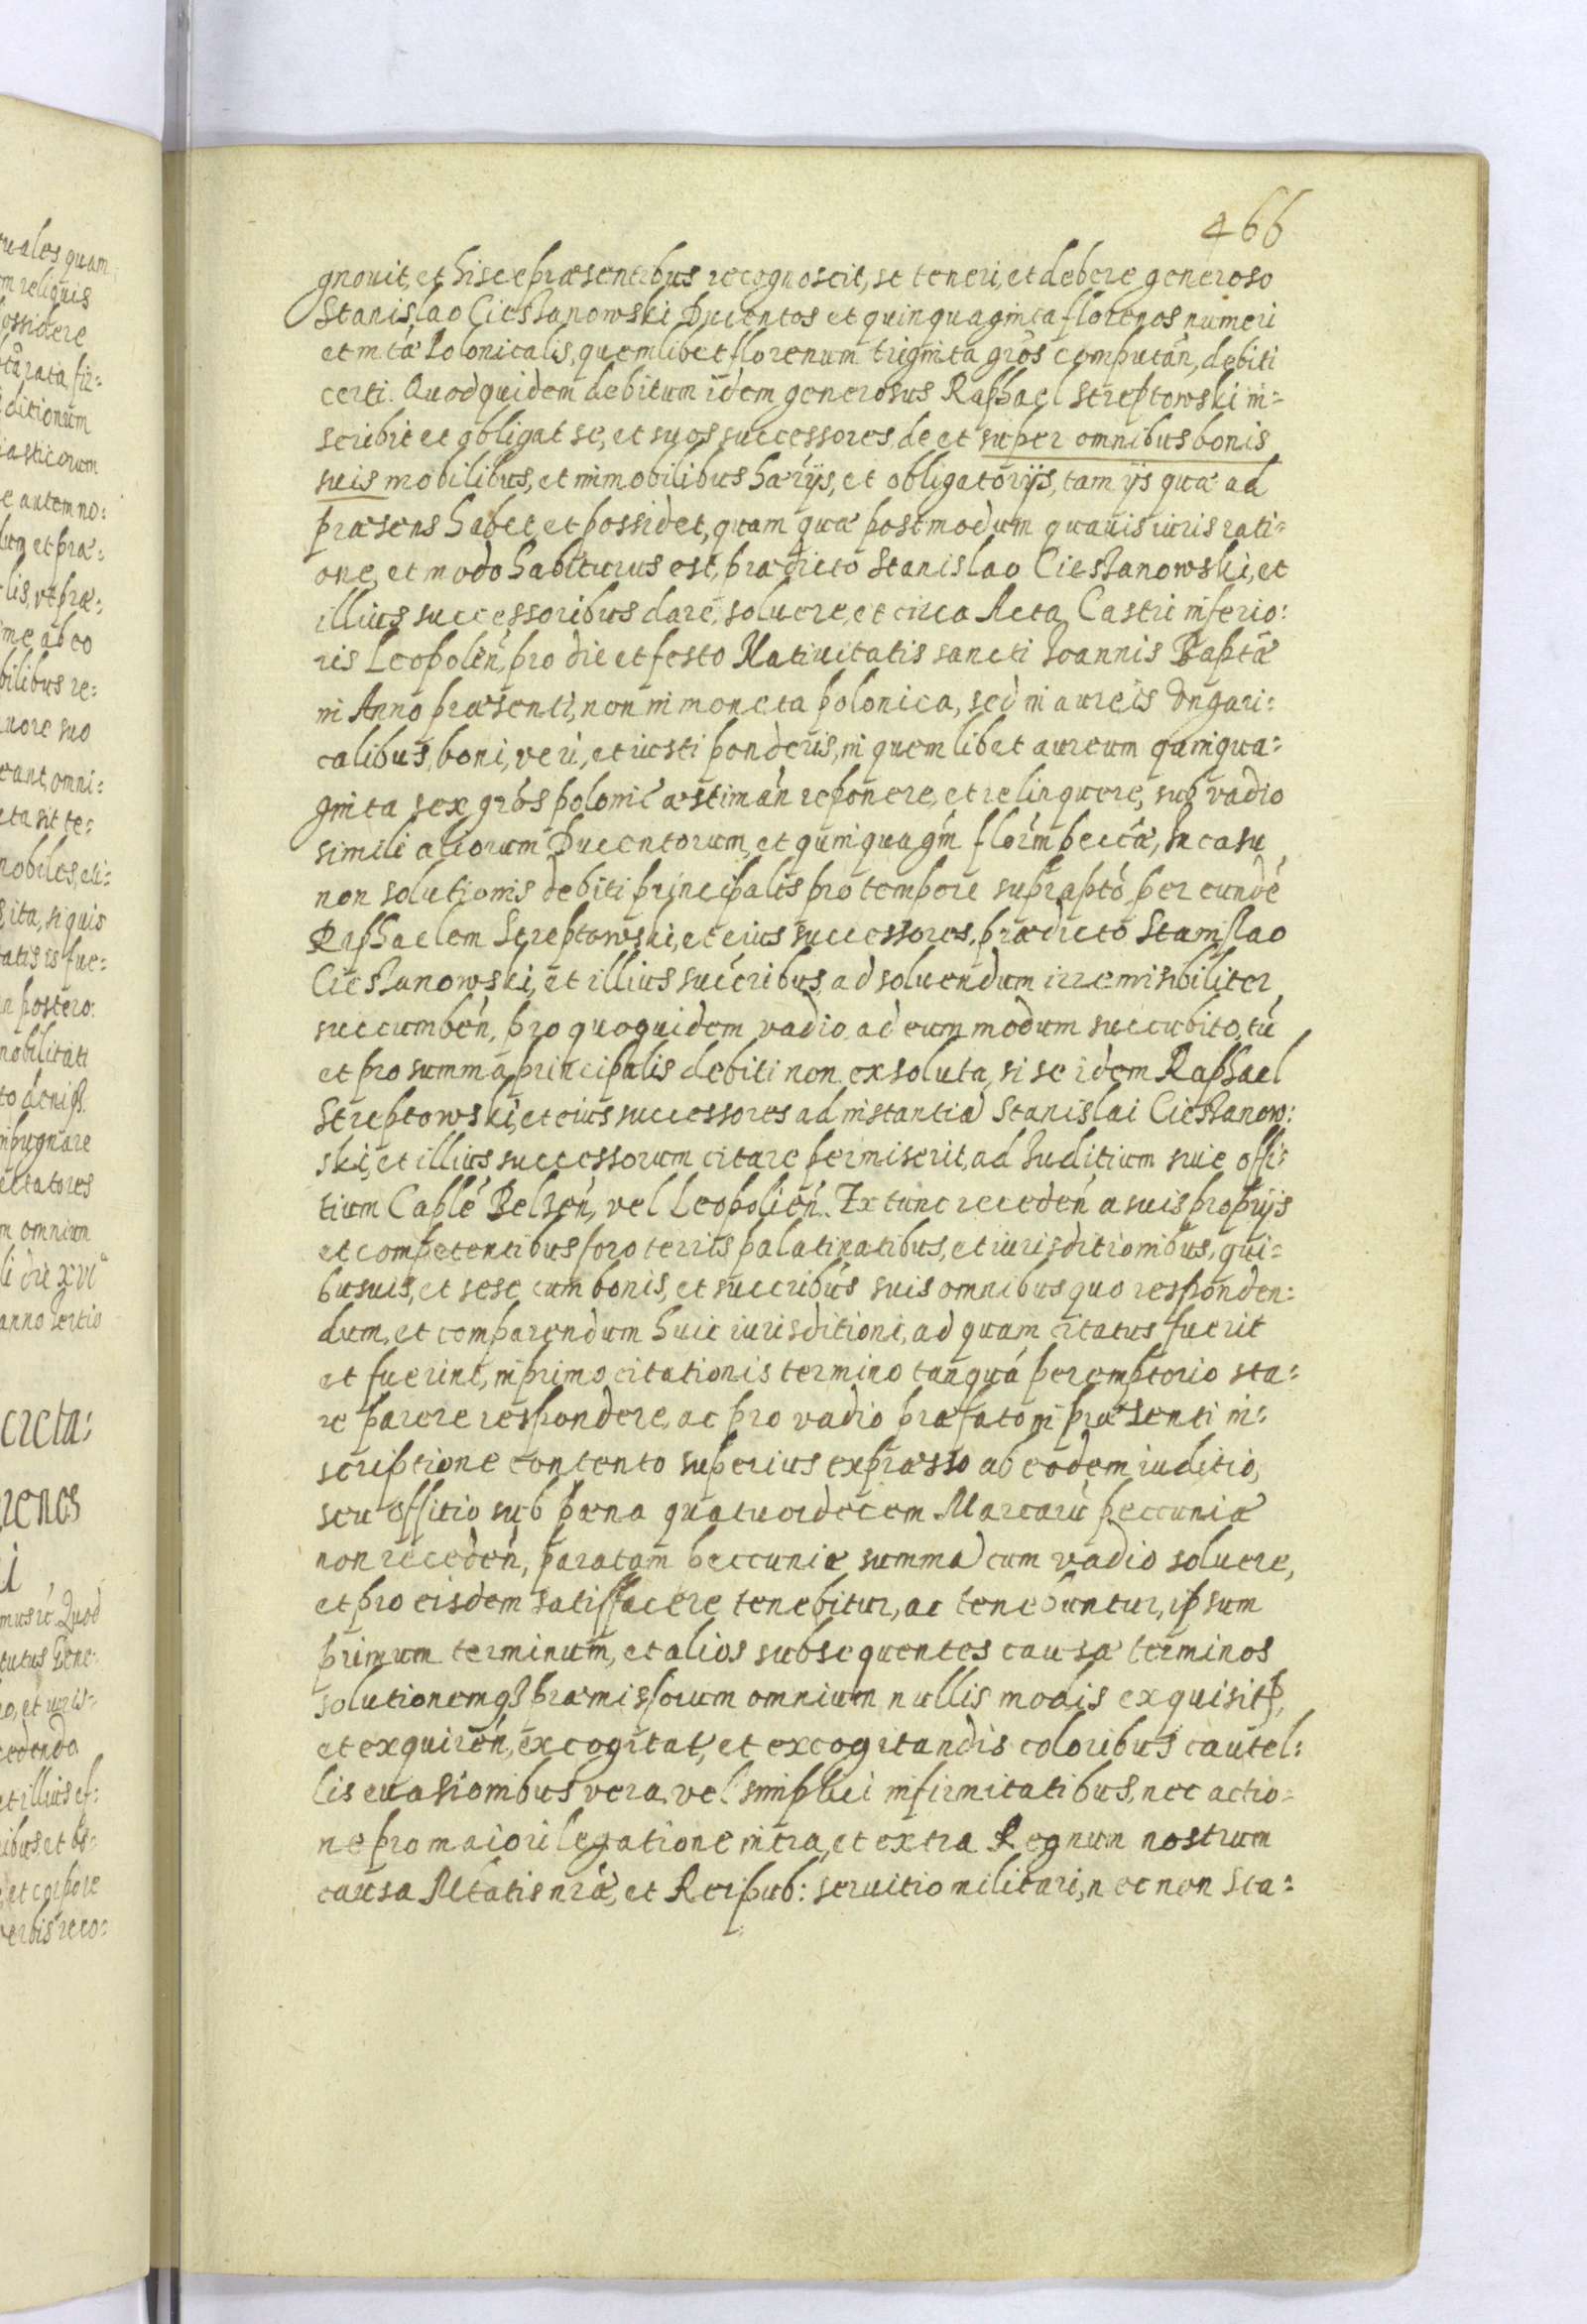 466
gnouit, et hisce præsentibus recognoscit, se teneri, et debere generoso
Stanislao Ciesżanowski Ducentos et quinquaginta florenos numeri
et mtæ Polonicalis, quemlibet florenum triginta grōs computań, debiti
certi. Quod quidem debitum idem generosus Raphael Streptowski in=
scribit et obligat se, et suos successores, de et super omnibus bonis
suis mobilibus, et immobilibus harÿs, et obligatorÿs, tam ÿs quæ ad
præsens habet, et possidet, quam quæ postmodum quauis iuris rati=
one, et modo habiturus est, prædicto Stanislao Ciesżanowski, et
illius successoribus dare, soluere, et circa Acta Castri inferio:
ris Leopolień, pro die et festo Natiuitatis sancti Ioannis Baptæ
in Anno præsenti, non in moneta polonica, sed in aureis Ungari:
calibus, boni, veri, et iusti ponderis, in quemlibet aureum quinqua=
ginta sex grōs polonić æstimań reponere, et relinquere, sub vadio
simili aliorum Ducentorum, et quinquagin florin pecćæ, In casu
non solutionis debiti principalis pro tempore suprapto, per eundé
Raphaelem Streptowski, et eius successores, prædicto Stanislao
Ciesżanowski, et illius succribus, ad soluendum irremissibiliter
succumbeń, pro quoquidem vadio, ad eum modum succubito, tú
et pro summa principalis debiti non exsoluta, si se idem Raphael
Streptowski, et eius successores ad instantiā Stanislai Ciesżanow:
ski, et illius successorum citare permiserit, ad Iuditium siue offi:
tium Caplé Belzeń, vel Leopolień. Ex tunc recedeń a suis proprÿs
et competentibus foro terris palatinatibus, et iurisditionibus, qui=
busuis, et sese cum bonis, et succribus suis omnibus quo responden:
dum, et comparendum huic iurisditioni, ad quam citatus fuerit
et fuerint, in primo citationis termino tanquá peremptorio sta:
re parere respondere, ac pro vadio præfato in præsenti in:
scriptione contento superius expræsso ab eodem iuditio,
seu offitio sub pæna quatuordecem Marcarú peccuniæ
non recedeń, paratam peccuniæ summā cum vadio soluere,
et pro eisdem satisfacere tenebitur, ac tenebuntur, ipsum
primum terminum, et alios subsequentes causæ terminos
solutionemqꝫ præmissorum omnium nullis modis exquisitꝭ,
et exquireń, excogitat, et excogitandis coloribus cautel:
lis euasionibus vera, vel simplici infirmitatibus, nec actio=
ne pro maiori legatione intra, et extra Regnum nostrum
causa Mtatis nræ, et Reipub: seruitio militari, nec non sta=